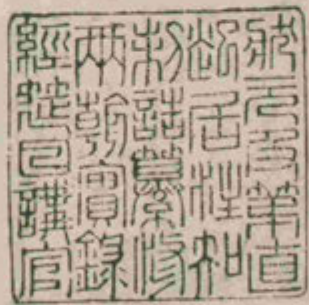 狀元及第直
起居注知
制誥纂修
兩朝實錄
經筵日講官